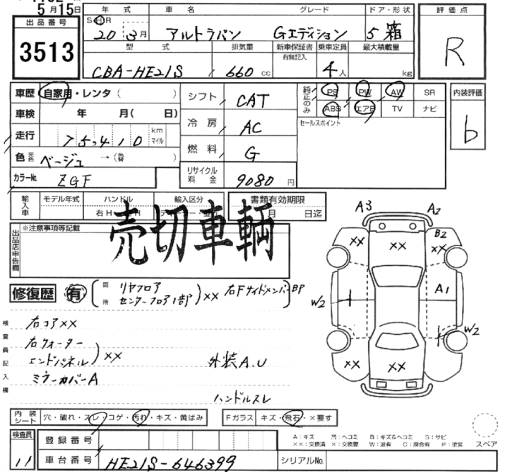 5月15日
出品番号 3513
年式 車名 グレード ドア・形状 評価点
20 3月 アルトラパン Gエディション 5 箱 R
型式 排気量 新車保証書 乗車定員 最大積載量
有無記入
CBA-HE21S 660 cc 4人 kg
車歴 自家用・レンタ( ) シフト CAT PS PW AW SR 内装評価
ABS エアB TV ナビ b
車検 年 月( 日) 冷房 AC セールスポイント
走行 75410 km マイル
燃料 G
色 ベージュ →(替)
カラーNo. ZGF リサイクル料金 9080円
輸入車 モデル年式 ハンドル 輸入区分 書類有効期限
右H 月 日迄
売切車輌
※注意事項等記載
出品店申告欄
修復歴 有 箇所 リヤフロア
センターフロア1部 ×× 右FサイドメンバーBP
検査員記入欄
右コア××
右クォーター
エンドパネル ××
ミラーカバーA
外装A.U
ハンドルスレ
A3 A2
×× B2 ××
W2 A1
×× W2
×× ××
内装シート 穴・破れ・スレ・コゲ・汚れ・キズ・黄ばみ Fガラス キズ・飛石・×要す
検査員 11
登録番号
A:キズ
スペア
車台番号 HE21S-646399 シリアルNo.